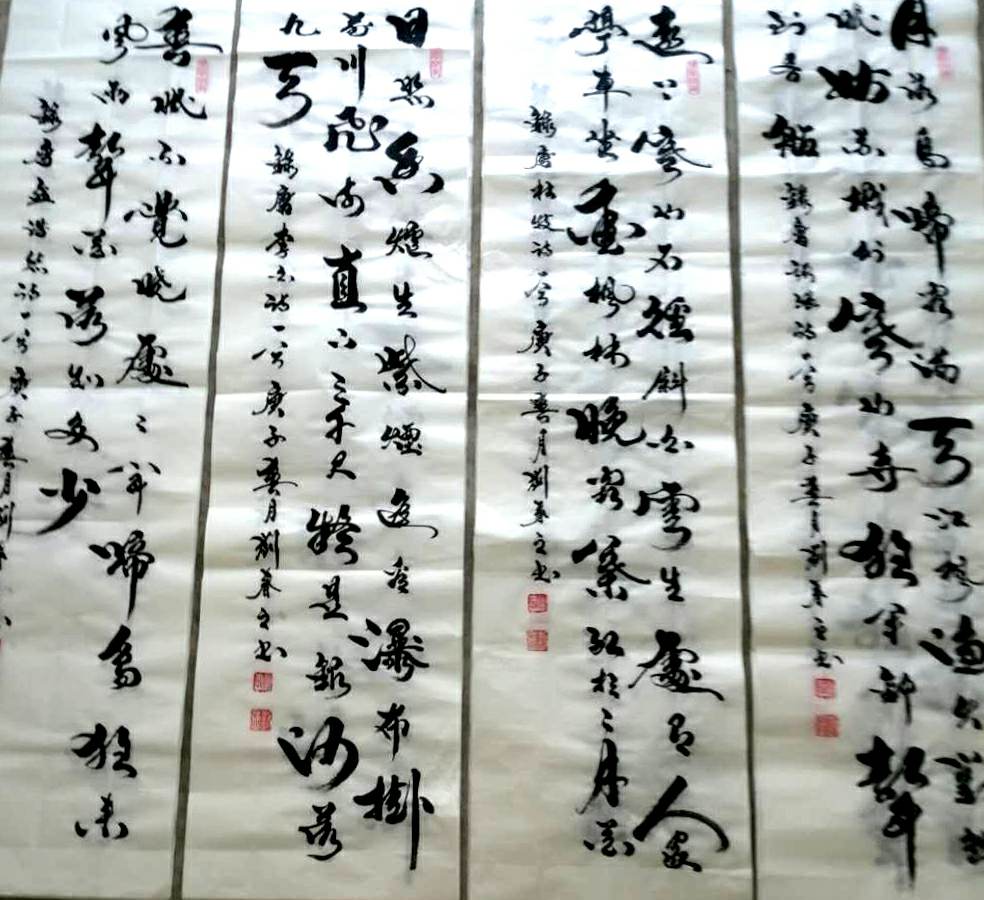 月落烏啼霜滿天江楓漁火對愁
眠姑蘇城外寒山寺夜半鐘聲
到客船
錄唐張継詩一首庚子春月劉之书
遠上寒山石徑斜白雲生處有人家
停車坐愛楓林晚霜葉紅於二月花
錄唐杜牧詩一首庚子春月劉之书
日照香爐生紫煙遥看瀑布掛
前川飛流直下三千尺疑是銀河落
九天
錄唐李白詩一首庚子春月劉之书
春眠不覺曉處々聞啼鳥夜来
風雨聲花落知多少
錄唐孟浩然詩一首庚子春月劉